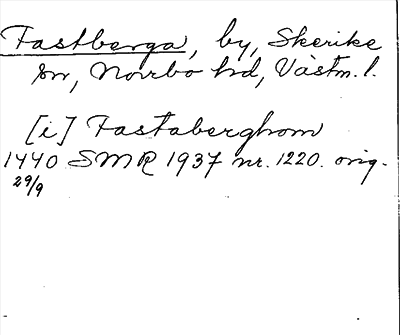 Fastberga, by, Skerike
sn, Norrbo hd, Västm. l.
[i] Fastaberghom
1440 SMR 1937 nr. 1220. orig.
29/9